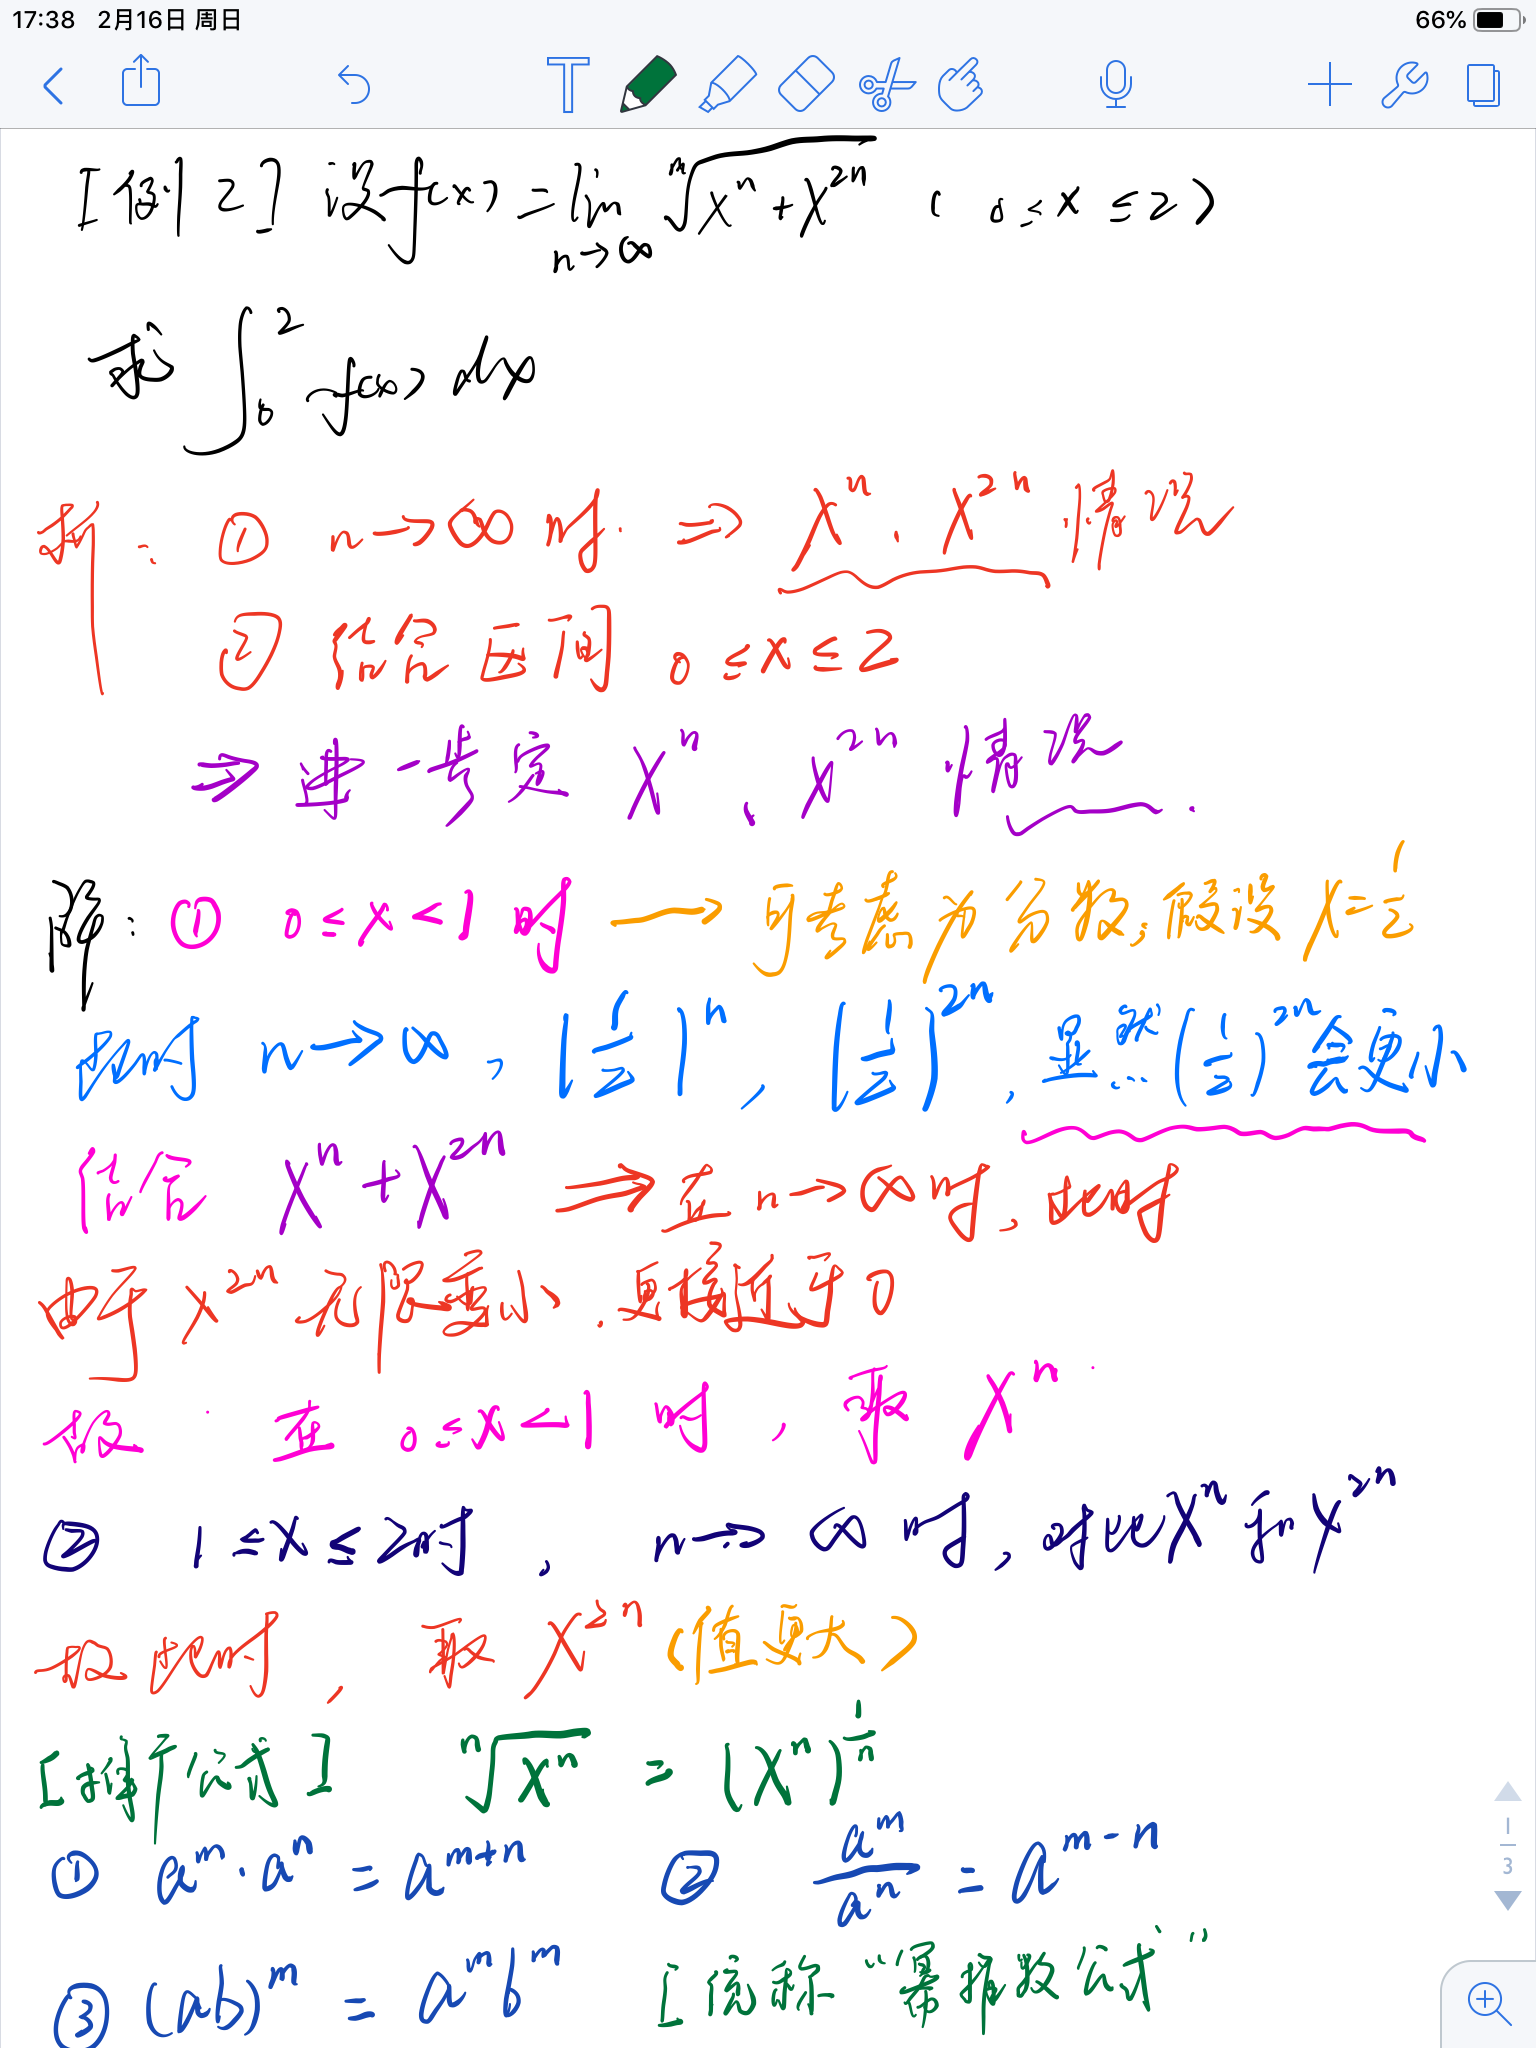 17:38 2月16日 周日 66%
[例2] 设f(x) = lim n→∞ ⁿ√(xⁿ + x²ⁿ) (0 ≤ x ≤ 2)
求 ∫₀² f(x) dx
析: ① n→∞ 时. ⇒ xⁿ、x²ⁿ 情况
② 结合区间 0 ≤ x ≤ 2
⇒ 进一步定 xⁿ、x²ⁿ 情况.
解: ① 0 ≤ x < 1 时 → 可考虑为分数,假设 x = 1/2
此时 n→∞, (1/2)ⁿ, (1/2)²ⁿ, 显然 (1/2)²ⁿ 会更小
结合 xⁿ + x²ⁿ ⇒ 在 n→∞ 时, 此时
由于 x²ⁿ 无限变小、更接近于 0
故 在 0 ≤ x < 1 时, 取 xⁿ
② 1 ≤ x ≤ 2时, n→∞ 时, 对比 xⁿ 和 x²ⁿ
故此时, 取 x²ⁿ (值更大)
[推广公式] ⁿ√xⁿ = (xⁿ)^(1/n)
① aᵐ·aⁿ = aᵐ⁺ⁿ ② aᵐ/aⁿ = aᵐ⁻ⁿ
③ (ab)ᵐ = aᵐbᵐ [统称“幂指数公式”
1
3